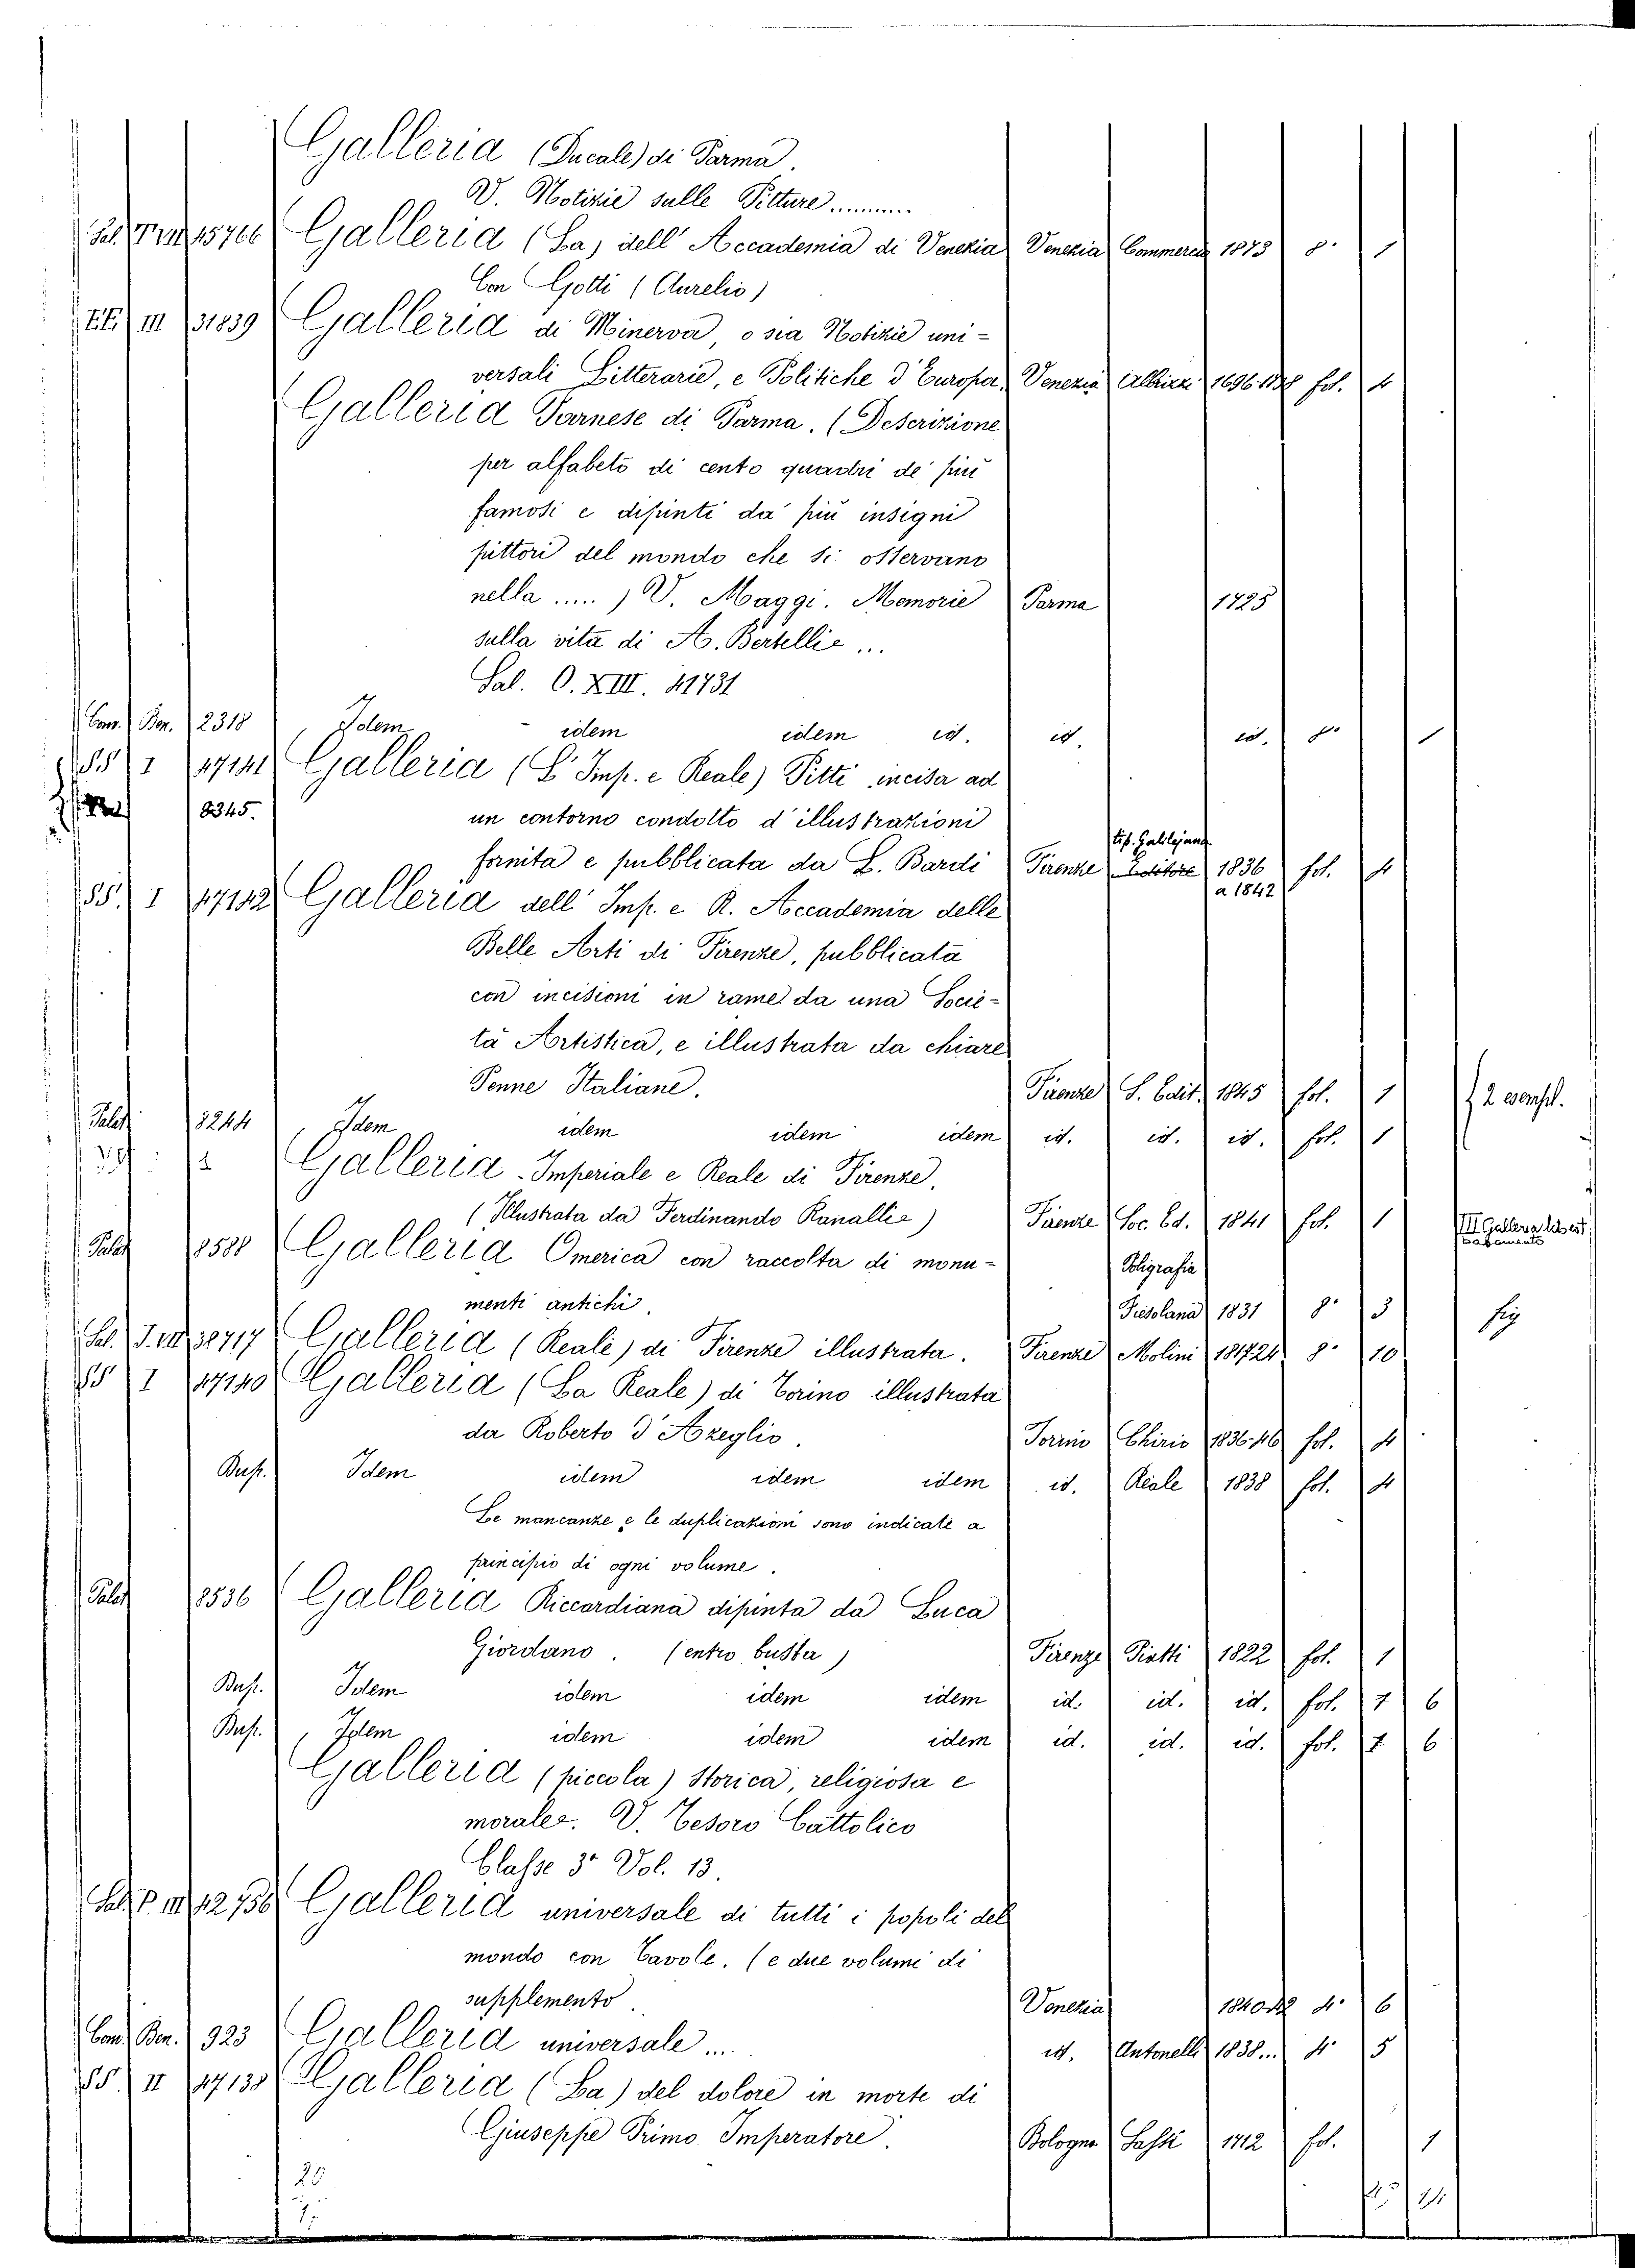 Galleria (Ducale) di Parma.
V. Notizie sulle Pitture........
Sal. T. VII 15766 Galleria (La) dell' Accademia di Venezia Venezia Commercio 1873 8° 1
Con Gotti (Aurelio)
EE. III 31839 Galleria di Minerva, o sia Notizie uni-
versali Litterarie, e Politiche d'Europa, Venezia Albrizzi 1696 fol. 4
Galleria Farnese di Parma. (Descrizione
per alfabeto di cento quadri de' più
famosi e dipinti da' più insigni
pittori del mondo che si osservano
nella ..... ) V. Maggi. Memorie Parma 1725
sulla vita di A. Bertelli ...
Sal. O. XIII. 41731
Con. Ben. 2318 Idem idem idem id. id. id. 8° 1
SS I 47141 Galleria (L' Imp. e Reale) Pitti incisa ad
8345. un contorno condotto d'illustrazioni
tip. Galilejana
fornita e pubblicata da L. Bardi Firenze Editore 1836 fol. 4
a 1842
SS. I 47142 Galleria dell' Imp. e R. Accademia delle
Belle Arti di Firenze, pubblicata
con incisioni in rame da una Socie-
tà Artistica, e illustrata da chiare
Penne Italiane. Firenze S. Edit. 1845 fol. 1 2 esempl.
Palat. 8244 Idem idem idem idem id. id. id. fol. 1
1 Galleria Imperiale e Reale di Firenze,
(Illustrata da Ferdinando Ranalli) Firenze Soc. Ed. 1841 fol. 1
Palat 8588 Galleria Omerica con raccolta di monu- Poligrafia
menti antichi. Fiesolana 1831 8° 3 fig
Sal. J. VII 38717 Galleria (Reale) di Firenze illustrata. Firenze Molini 1817 24 8° 10
SS I 47140 Galleria (La Reale) di Torino illustrata
da Roberto d'Azeglio. Torino Chirio 1836-46 fol. 4
Dup. Idem idem idem idem id. Reale 1838 fol. 4
Le mancanze e le duplicazioni sono indicate a
principio di ogni volume.
Palat 8536 Galleria Riccardiana dipinta da Luca
Giordano. (entro busta) Firenze Piatti 1822 fol. 1
Dup. Idem idem idem idem id. id. id. fol. 1 6
Dup. Idem idem idem idem id. id. id. fol. 1 6
Galleria (piccola) Storica, religiosa e
morale. V. Tesoro Cattolico
Classe 3ª Vol. 13.
Sal. P. III 12756 Galleria universale di tutti i popoli del
mondo con Tavole. (e due volumi di
supplemento. Venezia 1840-42 4° 6
Con. Ben. 923 Galleria universale ... id. Antonelli 1838... 4° 5
SS. II 47138 Galleria (La) del dolore in morte di
Giuseppe Primo Imperatore. Bologna Sassi 1712 fol. 1
20